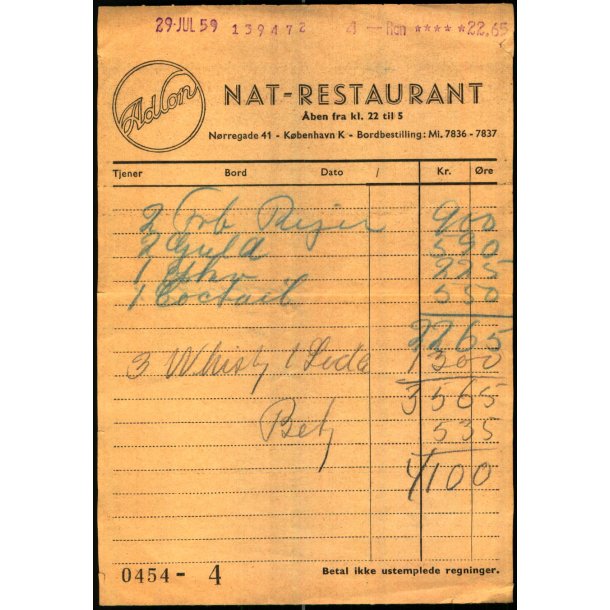 29 JUL 59 139472 4 — Ron ★★★★★22,65
Adlon
NAT-RESTAURANT
Åben fra kl. 22 til 5
Nørregade 41 - København K - Bordbestilling: Mi. 7836 - 7837
Tjener Bord Dato / Kr. Øre
2 Rejer 900
2 Guld 590
1 225
1 Coctail 550
2265
3 Whisky 1 1300
3565
Betj 535
4100
0454 - 4
Betal ikke ustemplede regninger.